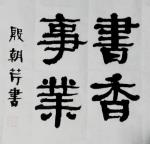 書香
事業
殷朝芹書